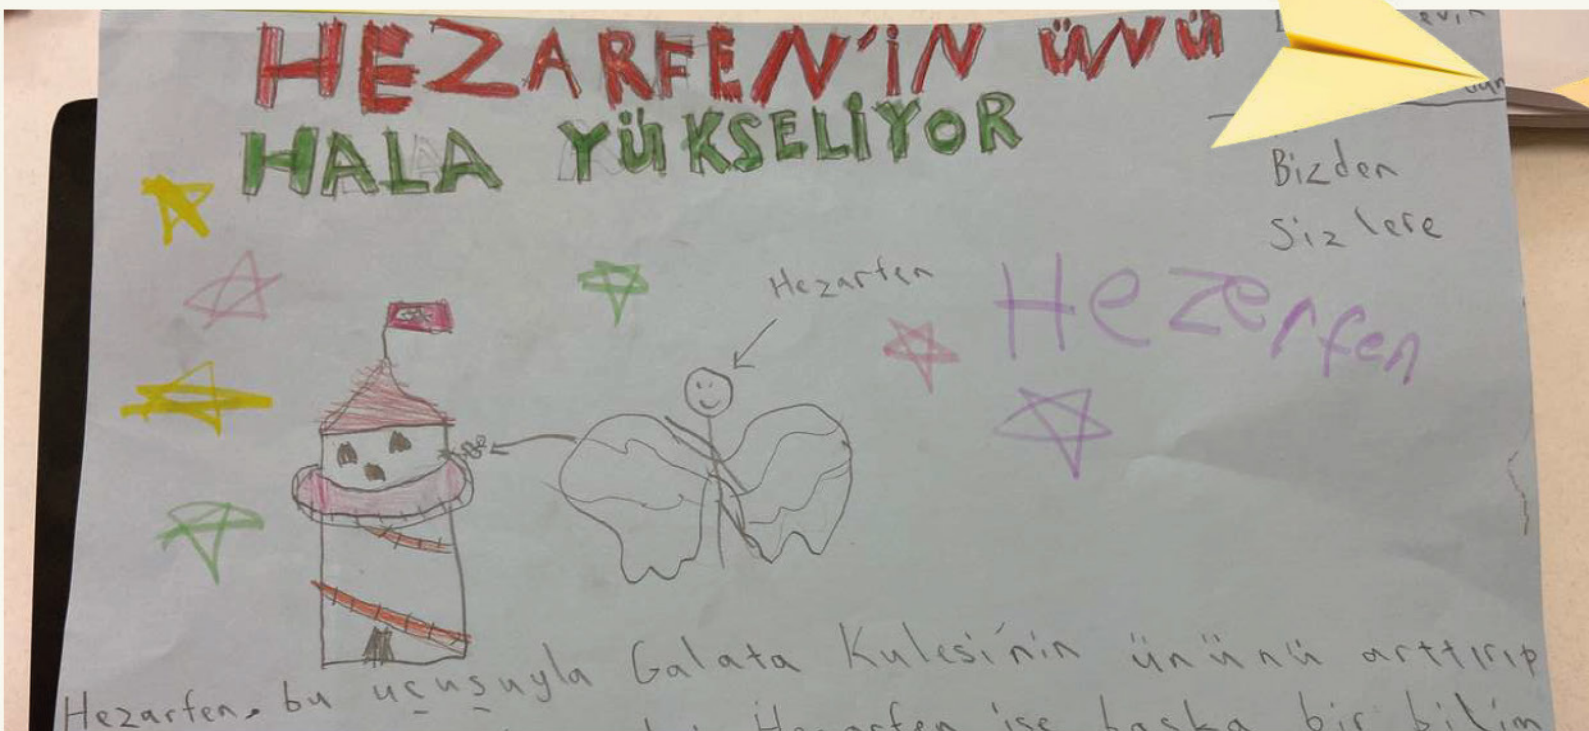 HEZARFEN'İN ÜNÜ
HALA YÜKSELİYOR
Bizden
Sizlere
Hezarfen
Hezerfen
Hezarfen, bu uçuşuyla Galata Kulesi'nin ününü arttırıp
Hezarfen ise başka bir bilim